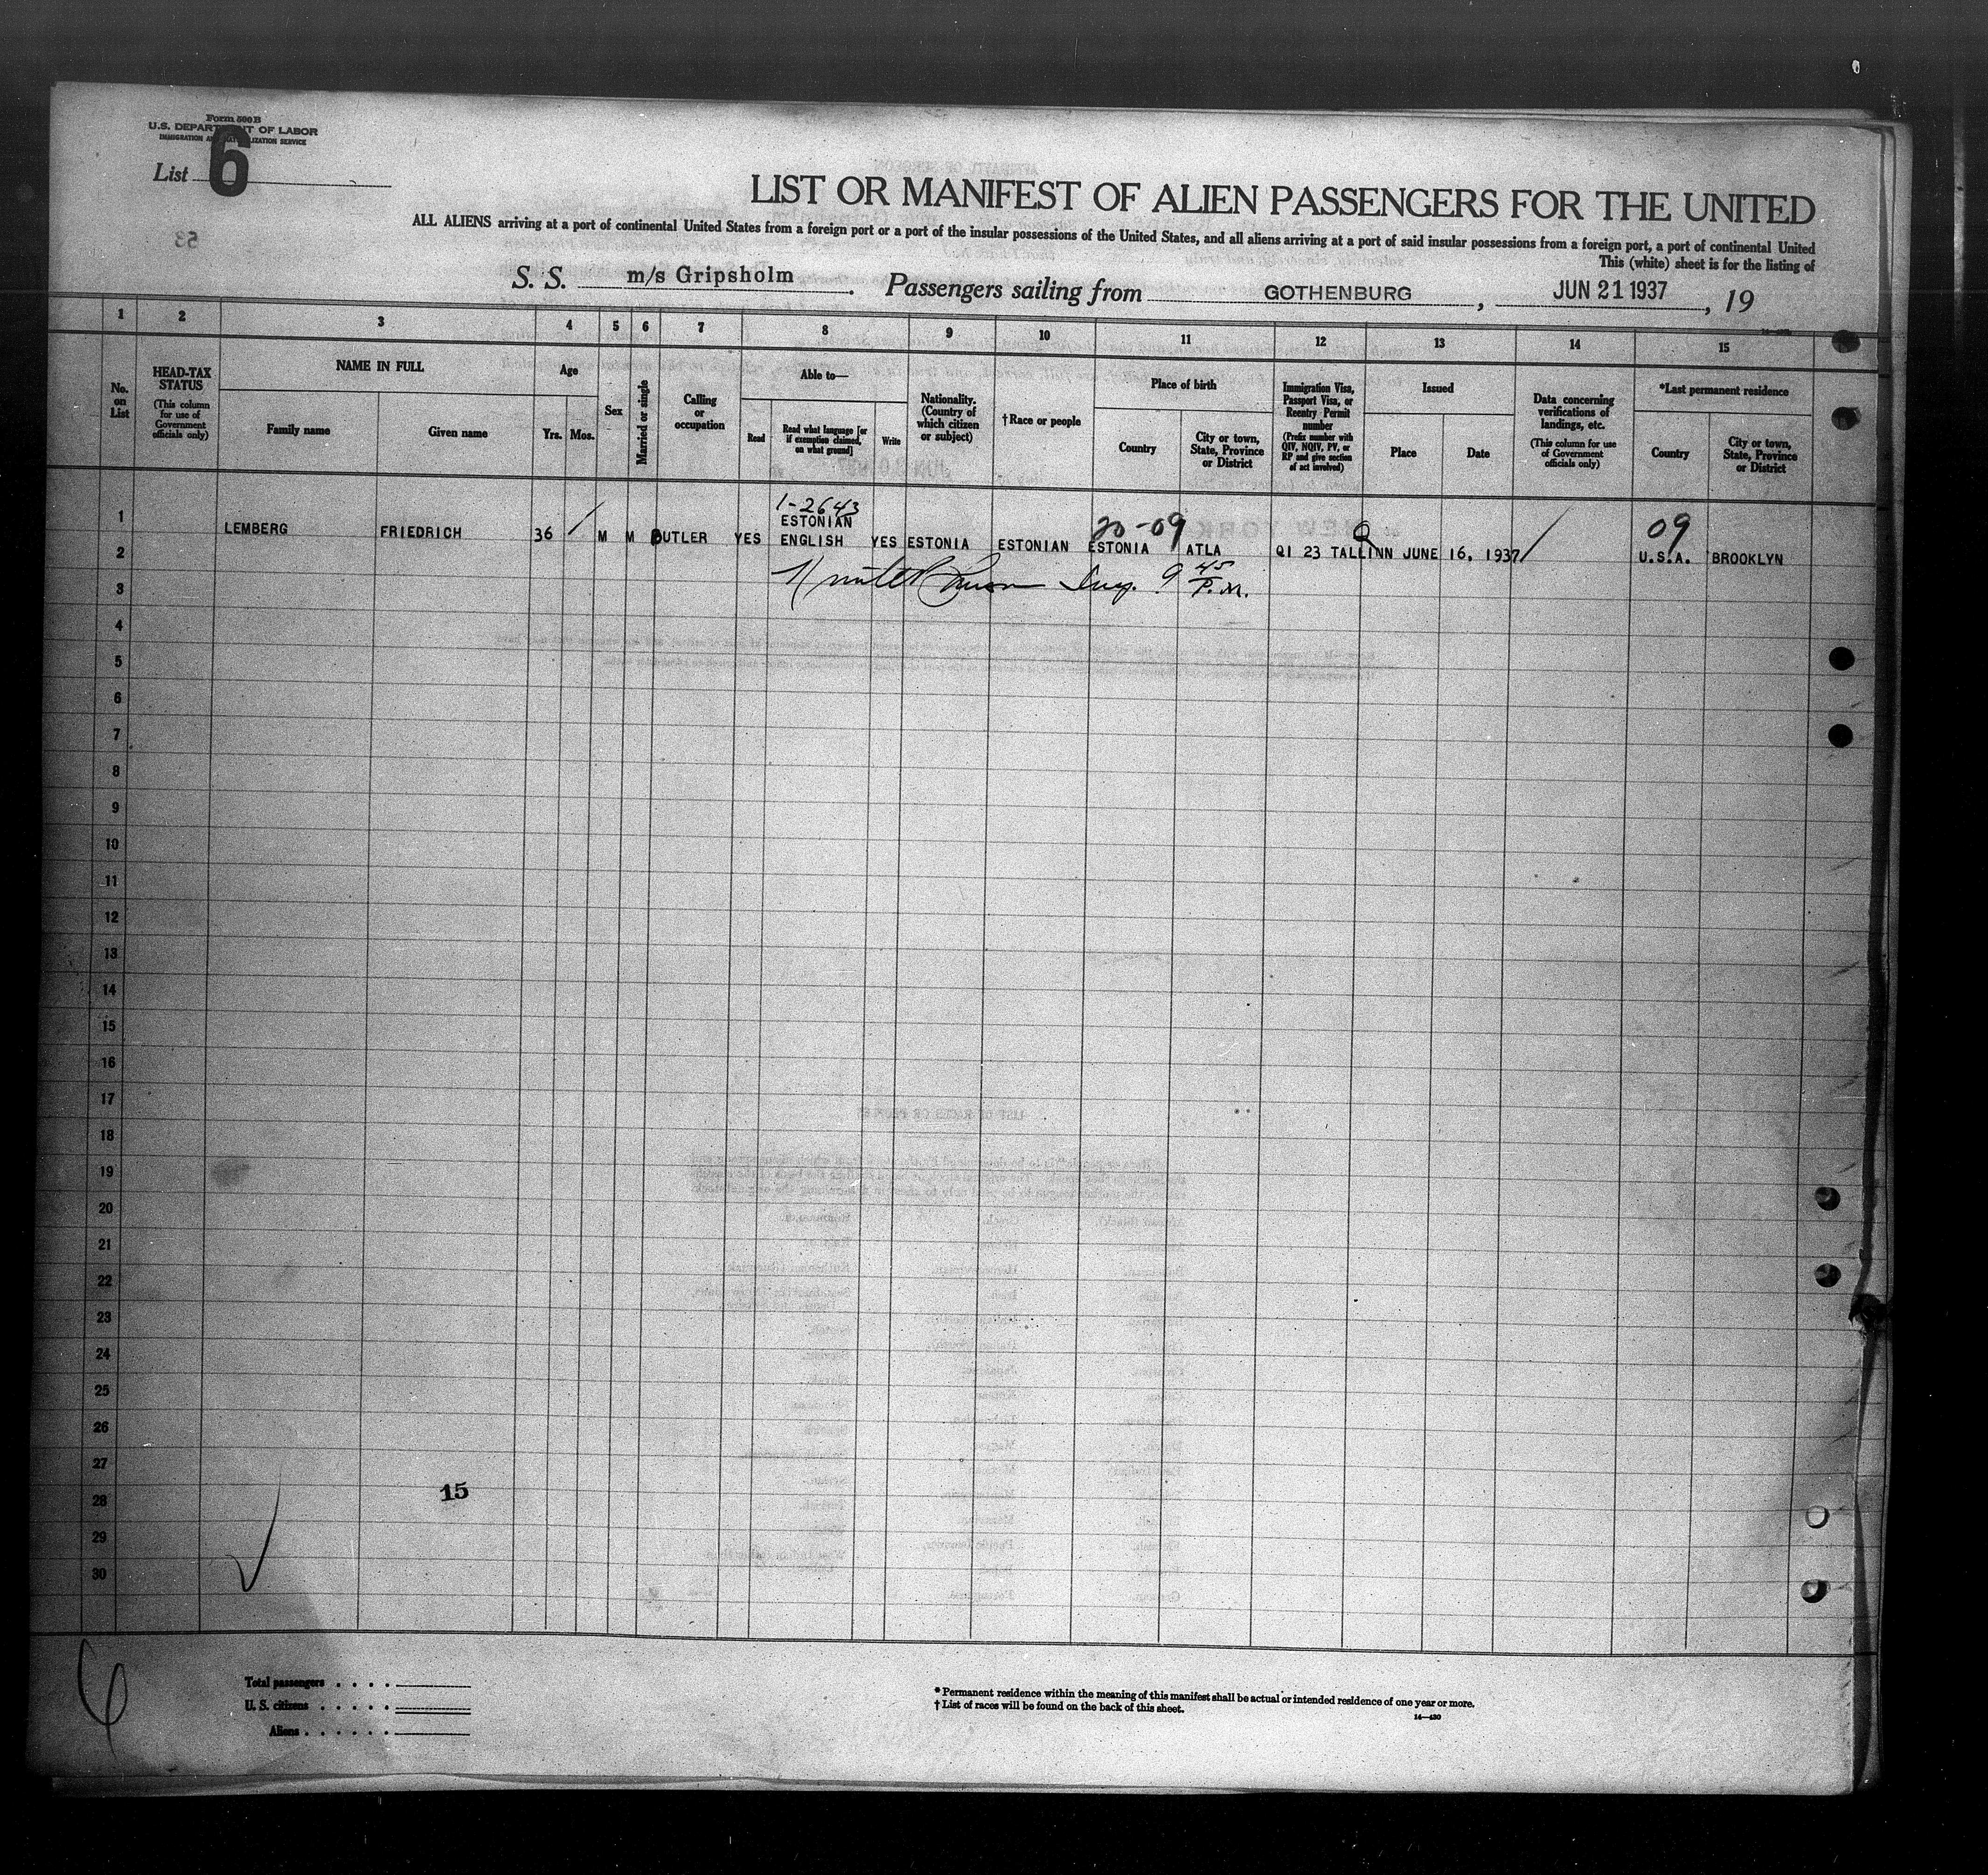 Form 500 B
U.S. DEPARTMENT OF LABOR
IMMIGRATION AND NATURALIZATION SERVICE
List 6
LIST OR MANIFEST OF ALIEN PASSENGERS FOR THE UNITED
ALL ALIENS arriving at a port of continental United States from a foreign port or a port of the insular possessions of the United States, and all aliens arriving at a port of said insular possessions from a foreign port, a port of continental United
This (white) sheet is for the listing of
S. S. m/s Gripsholm. Passengers sailing from GOTHENBURG, JUN 21 1937, 19
1 2 3 4 5 6 7 8 9 10 11 12 13 14 15
No. on List
HEAD-TAX STATUS
(This column for use of Government officials only)
NAME IN FULL
Family name
Given name
Age
Yrs.
Mos.
Sex
Married or single
Calling or occupation
Able to—
Read
Read what language [or if exemption claimed, on what ground]
Write
Nationality. (Country of which citizen or subject)
†Race or people
Place of birth
Country
City or town, State, Province or District
Immigration Visa, Passport Visa, or Reentry Permit number
(Prefix number with QIV, NQIV, PV, or RP and give section of act involved)
Issued
Place
Date
Data concerning verifications of landings, etc.
(This column for use of Government officials only)
*Last permanent residence
Country
City or town, State, Province or District
1-2643
ESTONIAN
20-09
09
1 LEMBERG FRIEDRICH 36 M M BUTLER YES ENGLISH YES ESTONIA ESTONIAN ESTONIA ATLA QI 23 TALLINN JUNE 16, 1937 U.S.A. BROOKLYN
Q
2
Insp. 9 45 P.M.
3
4
5
6
7
8
9
10
11
12
13
14
15
16
17
18
19
20
21
22
23
24
25
26
27
28
15
29
30
6
Total passengers
U. S. citizens
Aliens
* Permanent residence within the meaning of this manifest shall be actual or intended residence of one year or more.
† List of races will be found on the back of this sheet.
14—430